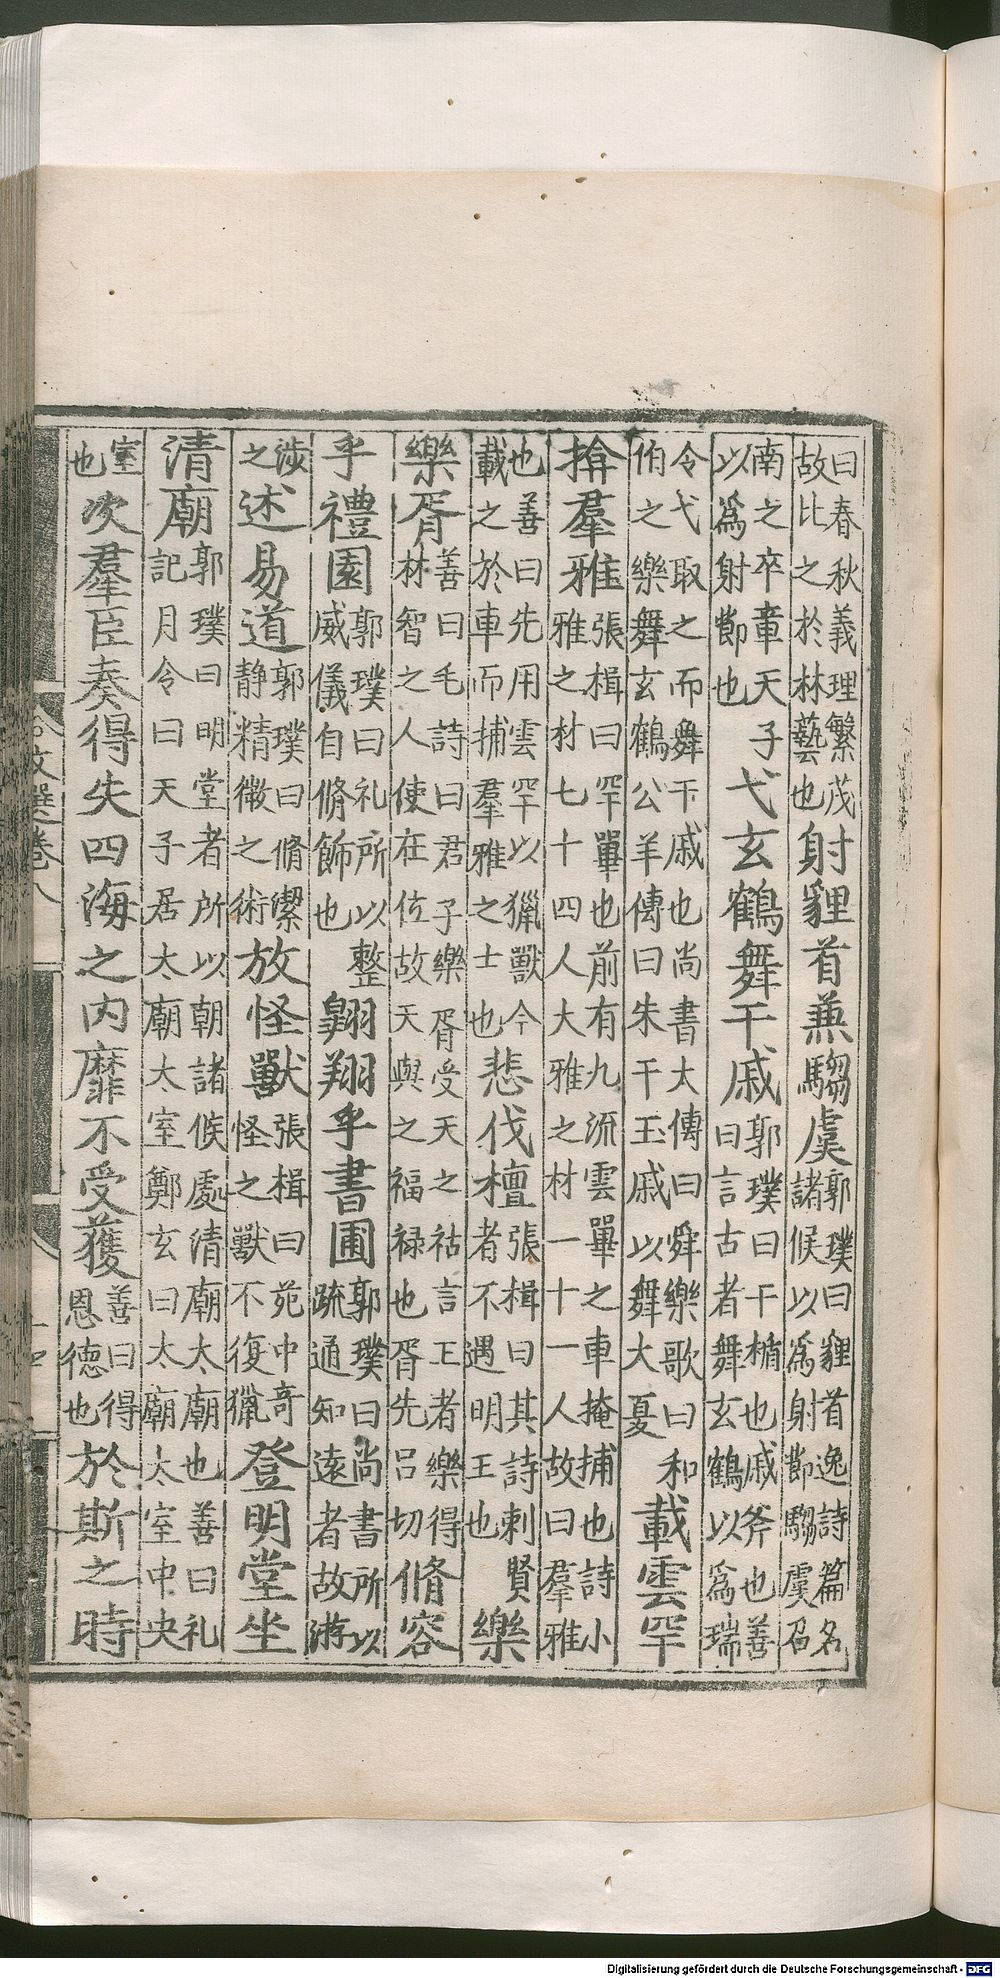 曰春秋義理繁茂故比之於林藝也射貍首兼騶虞郭璞曰貍首逸詩篇名諸候以為射節騶虞召
南之卒章天子以為射節也弋玄鶴舞干戚郭璞曰干楯也戚斧也善曰言古者舞玄鶴以為瑞
令弋取之而舞干戚也尚書大傳曰舜樂歌曰和伯之樂舞玄鶴公羊傳曰朱干玉戚以舞大夏載雲罕
揜羣雅張楫曰罕罼也前有九流雲罼之車掩捕也詩小雅之材七十四人大雅之材一十一人故曰羣雅
也善曰先用雲罕以獵獸今載之於車而捕羣雅之士也悲伐檀張楫曰其詩刺賢者不遇明王也樂
樂胥善曰毛詩曰君子樂胥受天之祜言王者樂得林智之人使在位故天與之福禄也胥先呂切脩容
乎禮園郭璞曰礼所以整威儀自脩飾也翱翔乎書圃郭璞曰尚書所以疏通知遠者故游
涉之述易道郭璞曰脩潔静精微之術放怪獸張楫曰苑中奇怪之獸不復獵登明堂坐
清廟郭璞曰明堂者所以朝諸候處清廟太廟也善曰礼記月令曰天子居大廟太室鄭玄曰太廟太室中央
室也次羣臣奏得失四海之内靡不受獲善曰得恩德也於斯之時
文選卷八
Digitalisierung gefördert durch die Deutsche Forschungsgemeinschaft - DFG